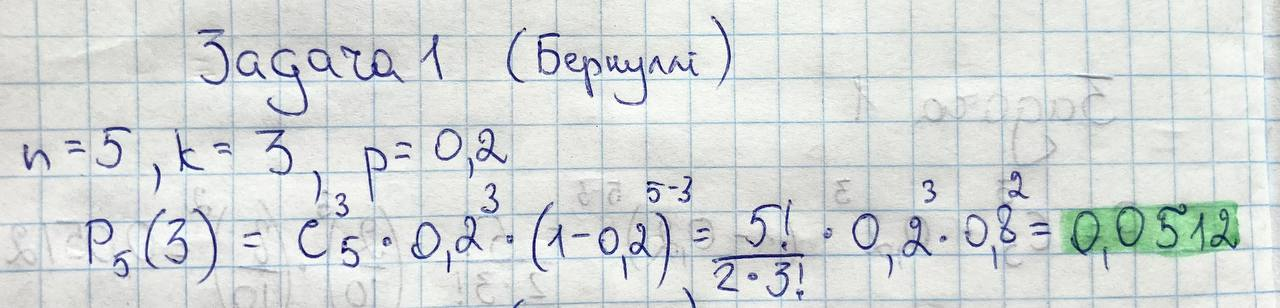 Задача 1 (Бернуллі)
n = 5, k = 3, p = 0,2
P₅(3) = C₅³ · 0,2³ · (1-0,2)⁵⁻³ = 5!/(2·3!) · 0,2³ · 0,8² = 0,0512